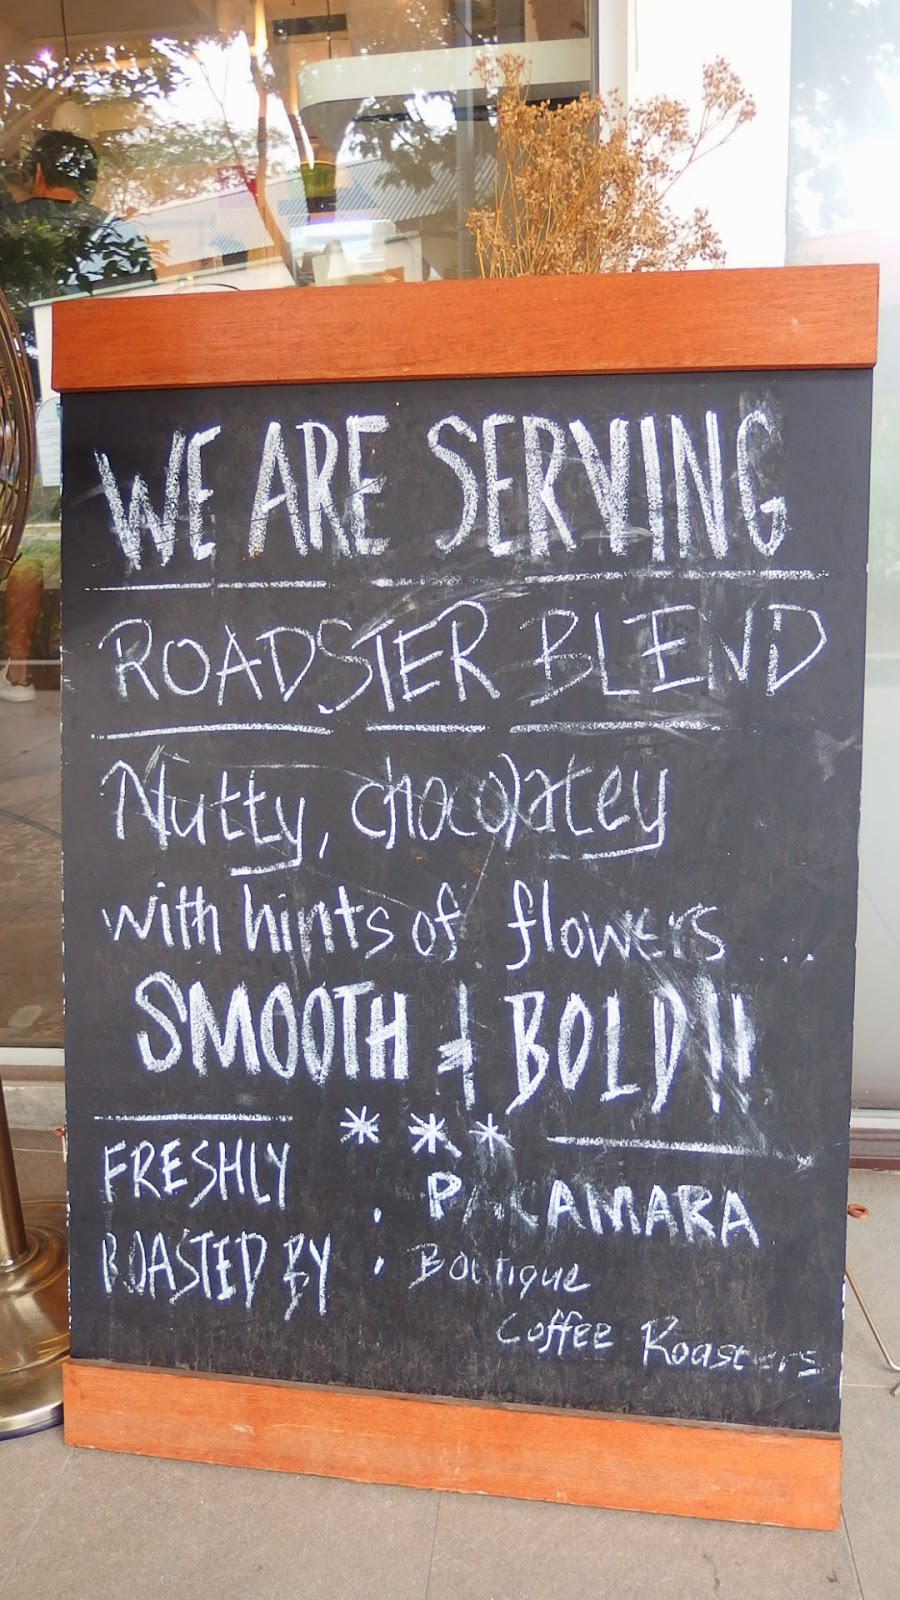 WE ARE SERVING
ROADSTER BLEND
Nutty, chocolatey
with hints of flowers ...
SMOOTH & BOLD!!
* * *
FRESHLY
ROASTED BY :
PACAMARA
Boutique
Coffee Roasters